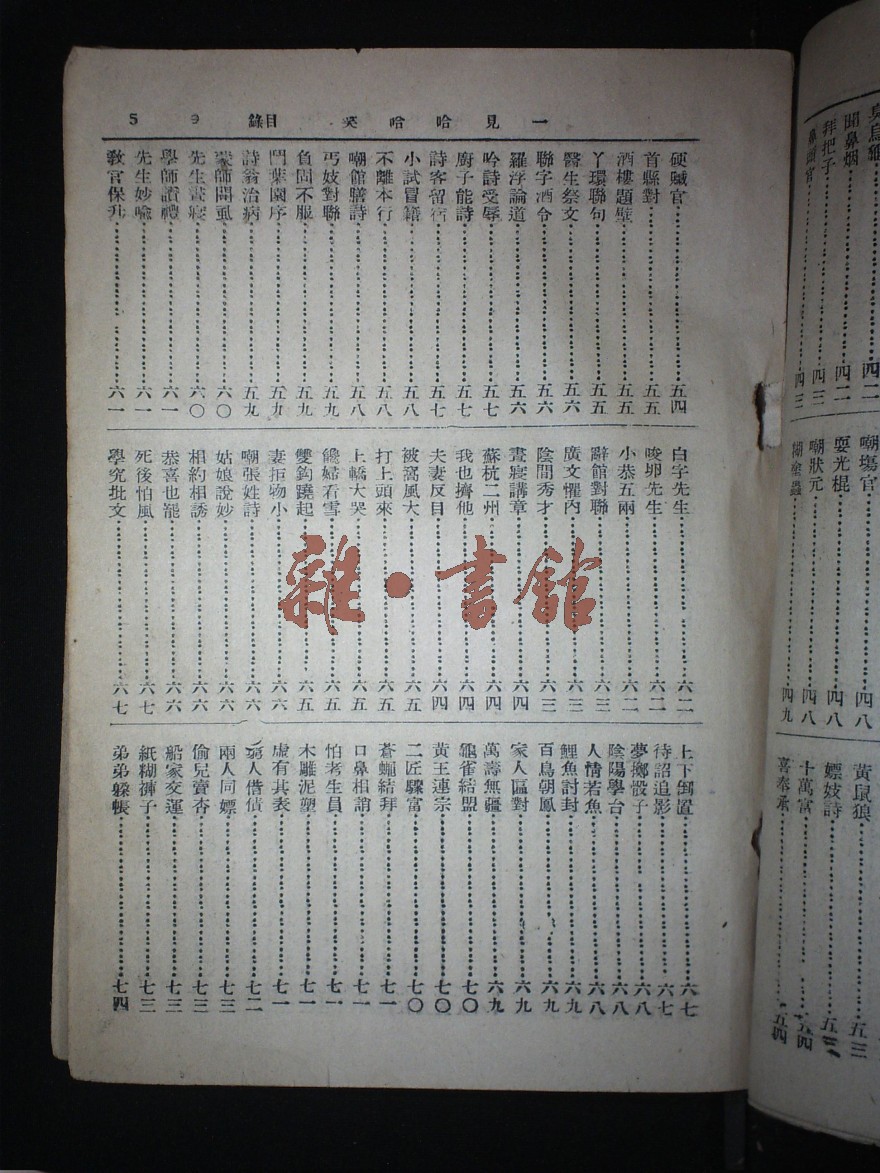 一見哈哈笑 目錄 5
硬贓官……五四
首縣對……五五
酒樓題壁……五五
丫環聯句……五五
醫生祭文……五六
聯字酒令……五六
羅浮論道……五六
吟詩受辱……五七
廚子能詩……五七
詩客留宿……五七
小試冒籍……五八
不離本行……五八
嘲館膳詩……五八
丐妓對聯……五九
負固不服……五九
鬥葉園序……五九
詩翁治病……五九
蒙師問虱……六〇
先生晝寢……六〇
學師讀禮……六一
先生妙喻……六一
教官保升……六一
白字先生……六二
唆卵先生……六二
小恭五兩……六二
辭館對聯……六三
廣文懼內……六三
陰間秀才……六三
晝寢講章……六四
蘇杭二州……六四
我也擠他……六四
夫妻反目……六四
被窩風大……六五
打上頭來……六五
上轎大哭……六五
饞婦看雪……六五
雙鈎蹺起……六五
妻拒物小……六六
嘲張姓詩……六六
姑娘說妙……六六
相約相誘……六六
恭喜也罷……六六
死後怕風……六七
學究批文……六七
上下倒置……六七
待詔追影……六七
夢擲骰子……六八
陰陽學台……六八
人情若魚……六八
鯉魚討封……六九
百鳥朝鳳……六九
家人區對……六九
萬壽無疆……六九
龜雀結盟……七〇
黃王連宗……七〇
二匠驟富……七〇
蒼蠅結拜……七一
口鼻相誚……七一
怕考生員……七一
木雕泥塑……七一
虛有其表……七一
窮人借債……七二
兩人同嫖……七三
偷兒賣杏……七三
船家交運……七三
紙糊褲子……七三
弟弟躲帳……七四
聞鼻烟……四二
拜把子……四三
鼻頭官……四三
嘲塲官……四八
耍光棍……四八
嘲狀元……四八
糊塗蟲……四九
黃鼠狼……五三
嫖妓詩……五三
十萬富……五四
喜奉承……五四
雜·書館